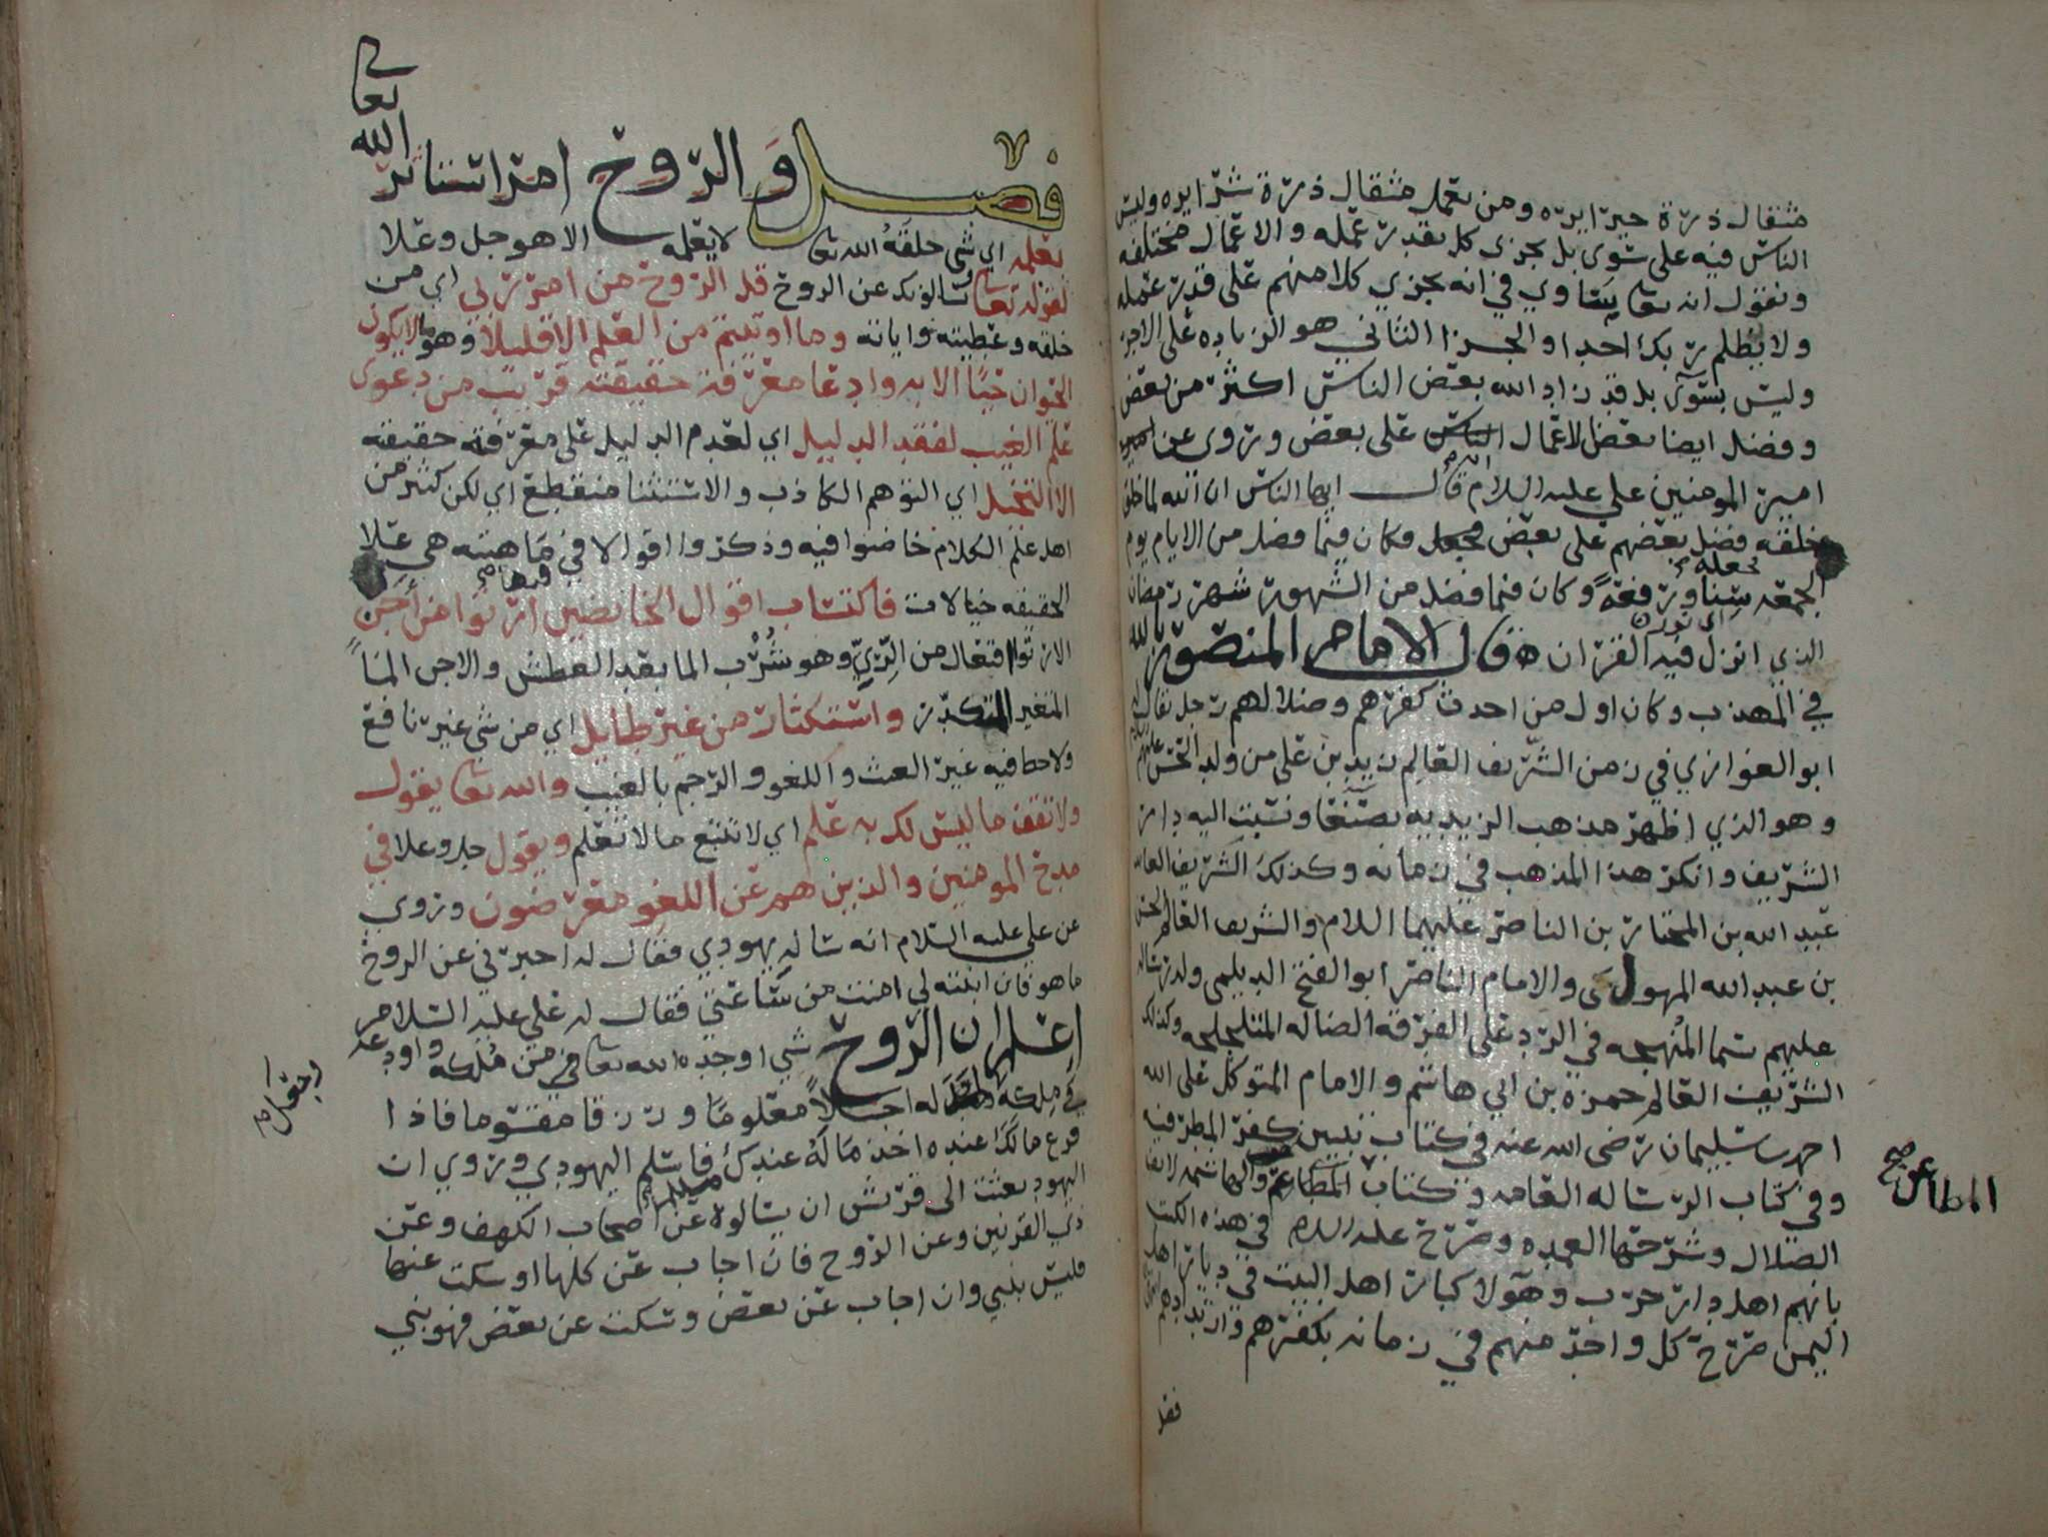 مثقال ذرة خيرا يره ومن يعمل مثقال ذرة شرا يره وليس
الناس فيه على سوى بل يجزى كل بقدر عمله والاعمال مختلفه
ونقول انه تعالى يساوي في انه يجزي كلا منهم على قدر عمله
ولا يظلم ربك احدا والجزا الثاني هو الزياده على الاجر
وليس بسوآ بل قد زاد الله بعض الناس اكثر من بعض
وفضل ايضا بعض الاعمال على بعض وروي عن
امير المومنين علي عليه السلام انه قال ايها الناس ان الله لما خلق
خلقه فضل بعضهم على بعض فكان فيما فضل من الايام يوم
الجمعه جعله وكان فيما فضل من الشهور شهر رمضان
الذي انزل فيه القران قال الامام المنصور بالله
في المهذب وكان اول من احدث كفرهم وضلالهم رجل يقال له
ابو الغوازي في زمن الشريف العالم زيد بن علي من ولد الحسن عليهم السلام
وهو الذي اظهر مذهب الزيديه بصنعا ونسبت اليه دار
الشريف وانكر هذا المذهب في زمانه وكذلك الشريف العالم
عبد الله بن المختار بن الناصر عليهما السلام والشريف العالم الحسن
بن عبد الله المهول والامام الناصر ابو الفتح الديلمي وله رساله
عليهم سما المبهجه في الرد على الفرقة الضاله المتلجلجه وكذلك
الشريف العالم حمزه بن ابي هاشم والامام المتوكل على الله
احمد بن سليمان رضي الله عنه في كتاب تبيين كفر المطرفيه
وفي كتاب الرساله العامه وكتاب المطاعن والهاشمه لانف
الضلال وشرحها العمده وصرح عليه السلام في هذه الكتب
بانهم اهل دار حرب وهولا كبار اهل البيت في ديار اهل
اليمن صرح كل واحد منهم في زمانه بكفرهم وارتدادهم
المطاعن صح
فصل
فصل والروح امر استاثر الله تعالى
بعلمه اي شي خلقه الله تعالى لا يعلمه الا هو جل وعلا
لقوله تعالى يسالونك عن الروح قل الروح من امر ربي اي من
خلقه وعطيته واياته وما اوتيتم من العلم الا قليلا وهو ما لا يكون
الحيوان حيا الا به وادعا معرفة حقيقته قريب من دعوى
علم الغيب لفقد الدليل اي لعدم الدليل على معرفة حقيقته
الا التخيل اي التوهم الكاذب والاستثنا منقطع اي لكن كثير من
اهل علم الكلام خاضوا فيه وذكروا اقوالا في ماهيته هي على
الحقيقه خيالات فاكتساب اقوال الخائضين فيها ارتوا من اجن
الارتوا افتعال من الري وهو شرب الما بعد العطش والاجن الما
المتغير المتكدر واستكثار من غير طايل اي من شي غير نافع
ولا حظ فيه غير العبث واللغو والرجم بالغيب والله تعالى يقول
ولا تقف ما ليس لك به علم اي لا تتبع ما لا تعلم ويقول جل وعلا في
مدح المومنين والذين هم عن اللغو معرضون وروي
عن علي عليه السلام انه ساله يهودي فقال له اخبرني عن الروح
ما هو فان ابنته لي امنت من ساعتي فقال له علي عليه السلام
اعلم ان الروح شي اوجده الله تعالى من ملكه واودعه
في ملكه له اجلا معلوما ورزقا مقسوما فاذا
فرغ مالك عنده اخذ ماله عندك فاسلم اليهودي وروي ان
اليهود بعثت الى قريش ان يسالوه عن اصحاب الكهف وعن
ذي القرنين وعن الروح فان اجاب عن كلها او سكت عنها
فليس بنبي وان اجاب عن بعض وسكت عن بعض فهو نبي
وجعل صح